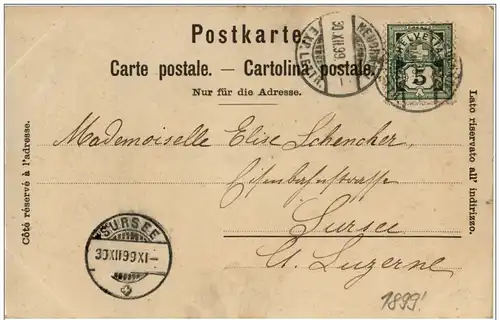 Postkarte.
Carte postale. — Cartolina postale.
Nur für die Adresse.
HELVETIA
5
30.XII.99
EXP. LET
Côté réservé à l'adresse.
Lato riservato all' indirizzo.
Mademoiselle Elise Schencher,
Eisenbahnstrasse
Sursee
Ct. Luzerne
SURSEE
30XII99XI-
1899!